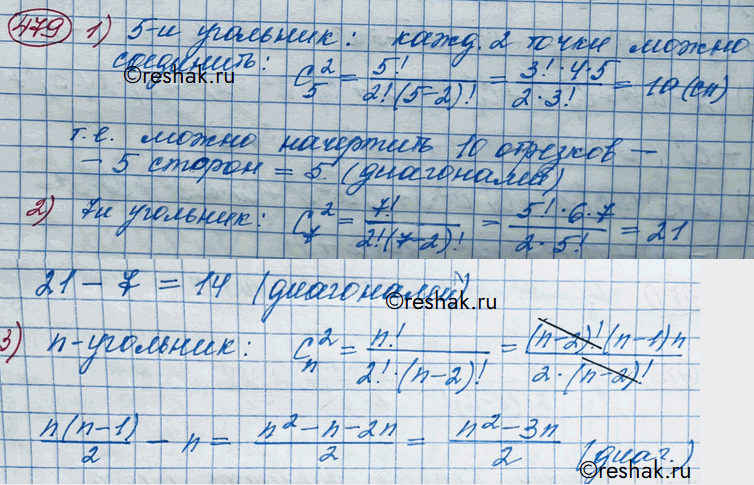 479 1) 5-и угольник: кажд. 2 точки можно
соединить: C₅² = 5!/(2!(5-2)!) = (3!·4·5)/(2·3!) = 10 (сп)
©reshak.ru
т.е. можно начертить 10 отрезков —
- 5 сторон = 5 (диагоналей)
2) 7и угольник: C₇² = 7!/(2!(7-2)!) = (5!·6·7)/(2·5!) = 21
21 - 7 = 14 (диагоналей)
©reshak.ru
3) n-угольник: Cₙ² = n!/(2!·(n-2)!) = ((n-2)!(n-1)n)/(2·(n-2)!)
n(n-1)/2 - n = (n²-n-2n)/2 = (n²-3n)/2 (диаг.)
©reshak.ru